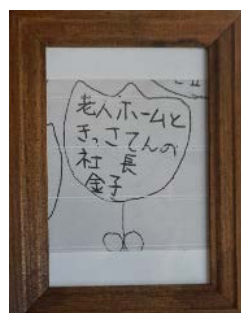 老人ホームと
きっさてんの
社長
金子